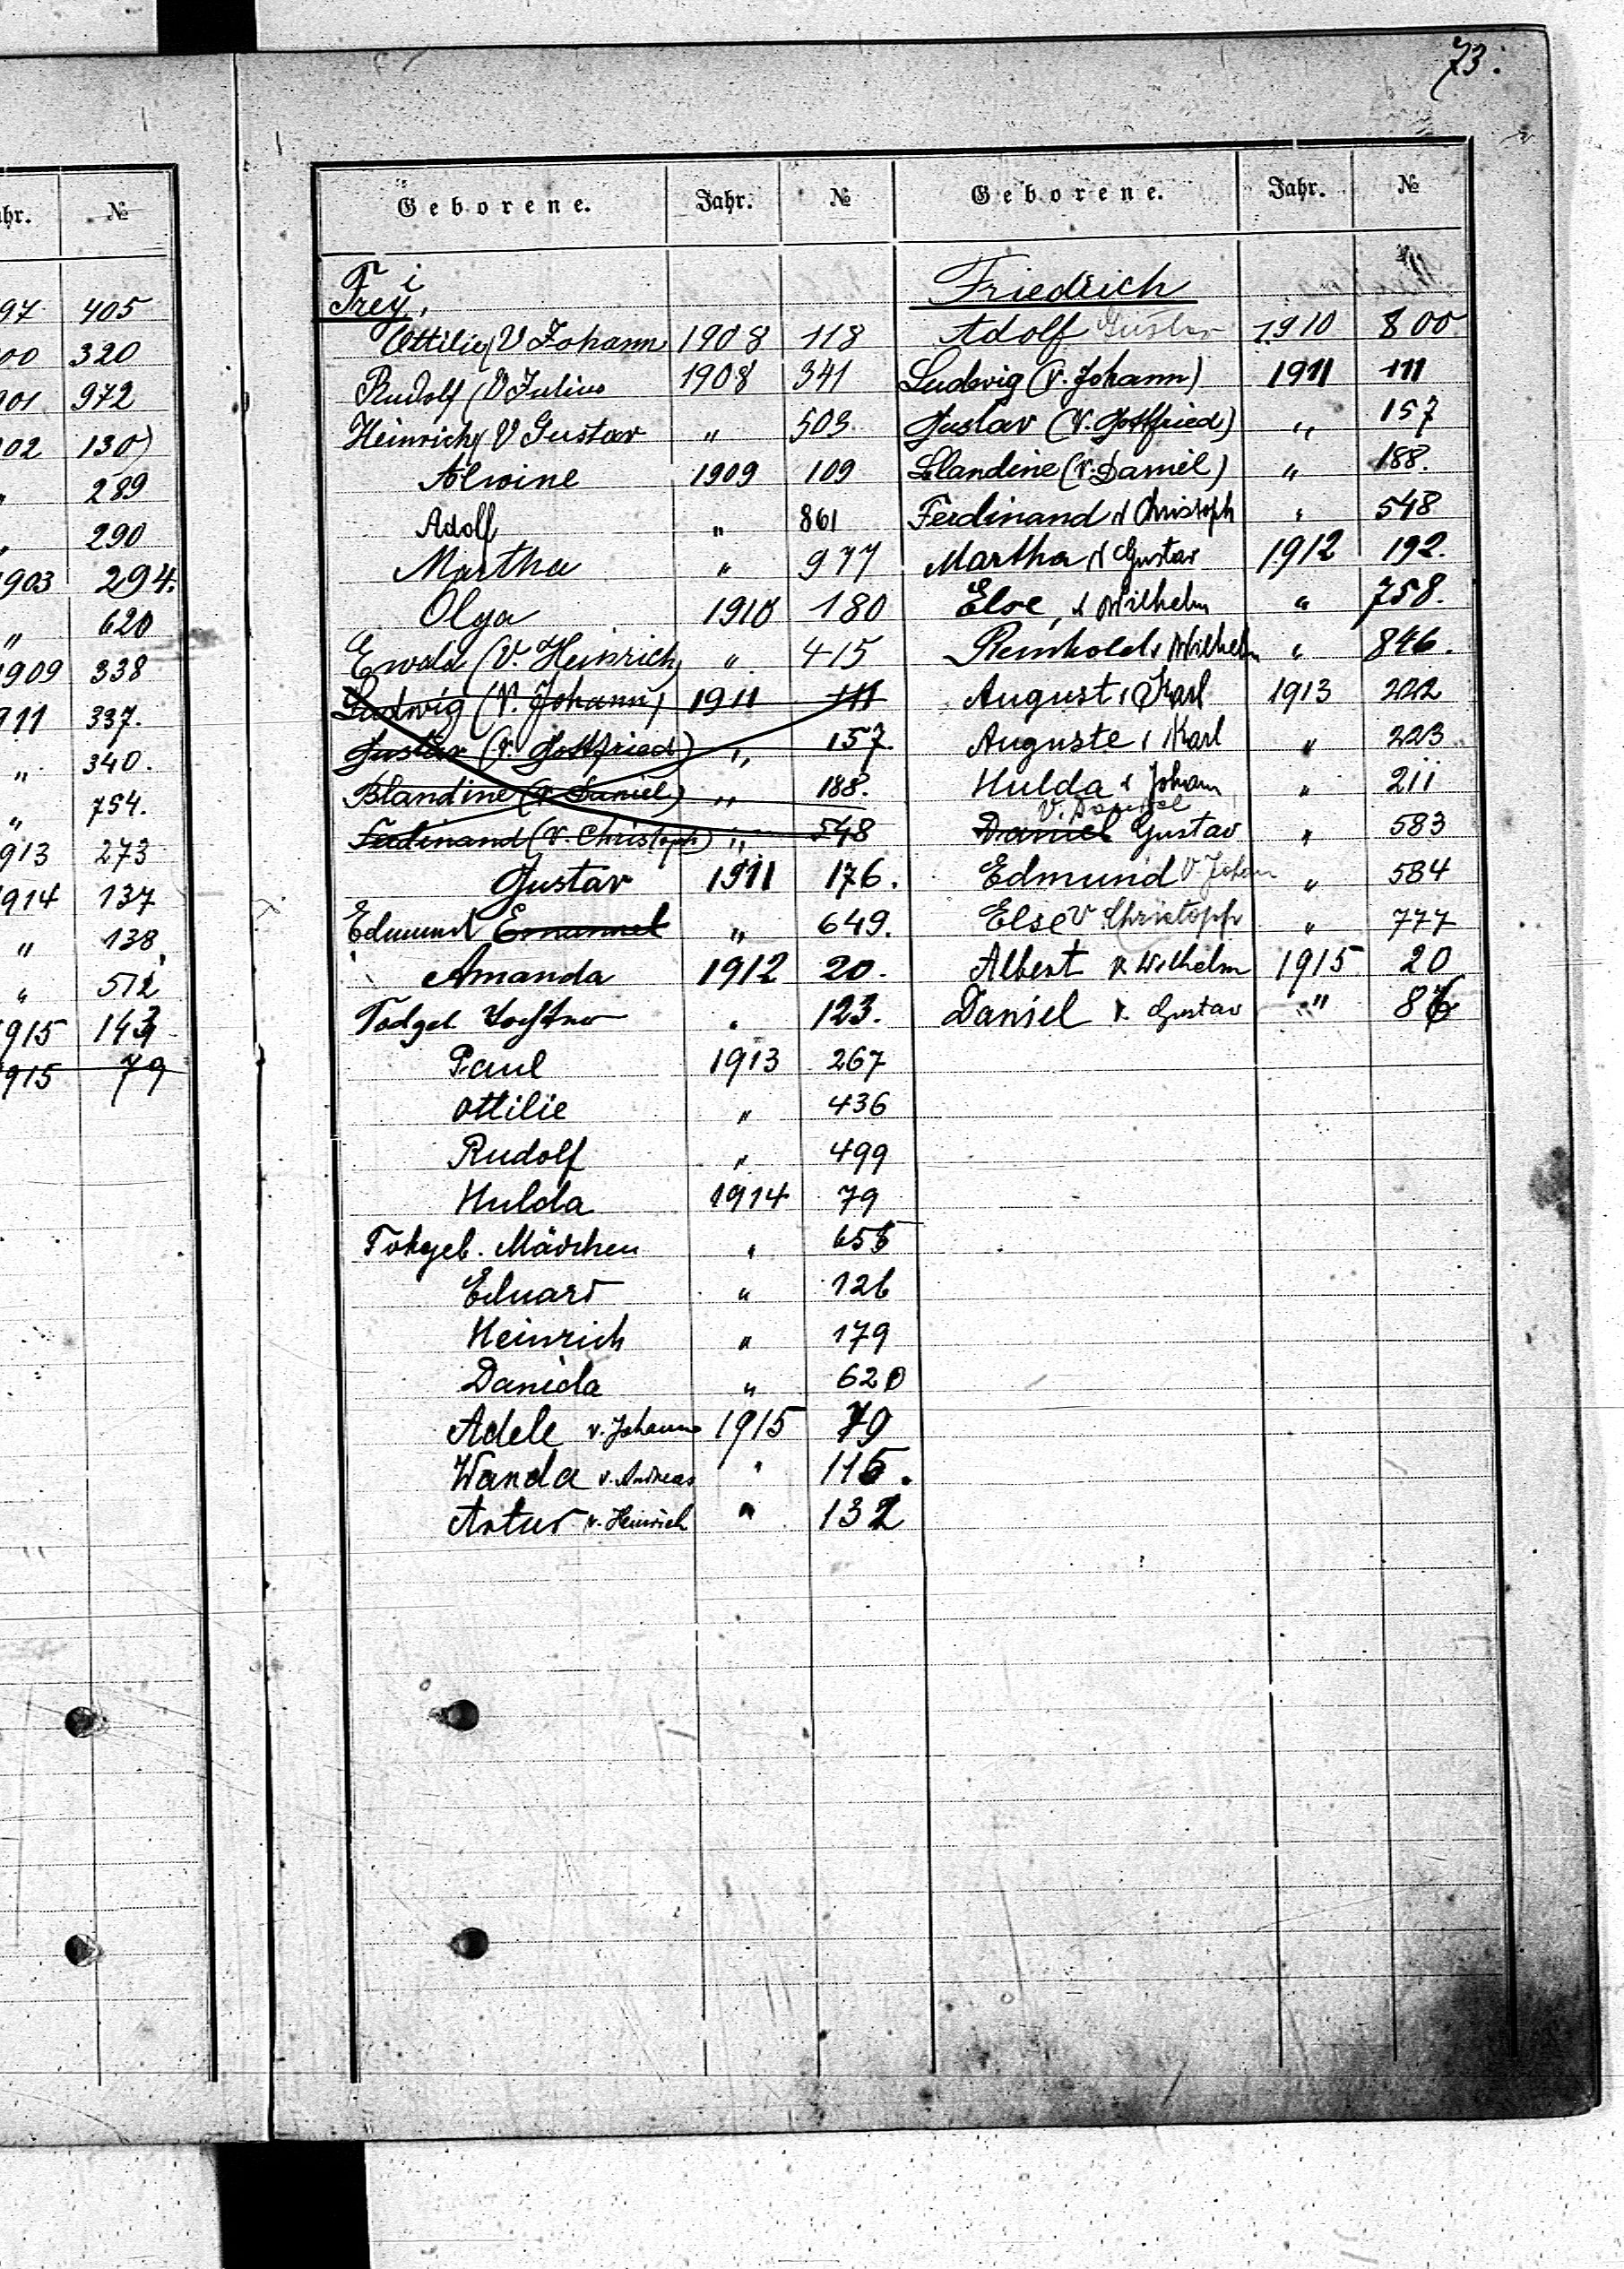 73.
Jahr. №
97 405
00 320
901 972
902 130
" 289
" 290
1903 294.
" 620
1909 338
911 337.
" 340.
" 754.
913 273
914 137
" 138.
" 512
1915 143
1915 79
Geborene. Jahr. №
Frey, i
Ottilie (V Johann 1908 118
Rudolf (V Julius 1908 341
Heinrich (V Gustav " 503
Alwine 1909 109
Adolf " 861
Martha " 977
Olga 1910 180
Ewald (V. Heinrich) " 415
Ludwig (V. Johann) 1911 111
Gustav (V. Gottfried) " 157.
Blandine (V. Daniel) " 188.
Ferdinand (V. Christoph) " 548
Gustav 1911 176.
Edmund Emanuel " 649.
Amanda 1912 20.
Todgeb. " 123.
Paul 1913 267
Ottilie " 436
Rudolf " 499
Hulda 1914 79
Totgeb. Mädchen "
Eduard " 126
Heinrich " 179
Danida " 620
Adele v. Johann 1915 79
Wanda v. Andreas "
Artur v. Heinrich " 132
Geborene. Jahr. №
Friedrich
Adolf Gustav 1910 800.
Ludwig (V. Johann) 1911 111
Gustav (V. Gottfried) " 157
Blandine (V. Daniel) " 188.
Ferdinand V Christoph " 548
Martha V Gustav 1912 192.
Else, V Wilhelm " 758.
Reinhold, Wilhelm " 846.
August, Karl 1913 222
Auguste, Karl " 223
Hulda V Johann " 211
V. Daniel
Daniel Gustav " 583
Edmund V Johann " 584
Else V Christoph " 777
Albert V. Wilhelm 1915 20
Daniel V. Gustav "